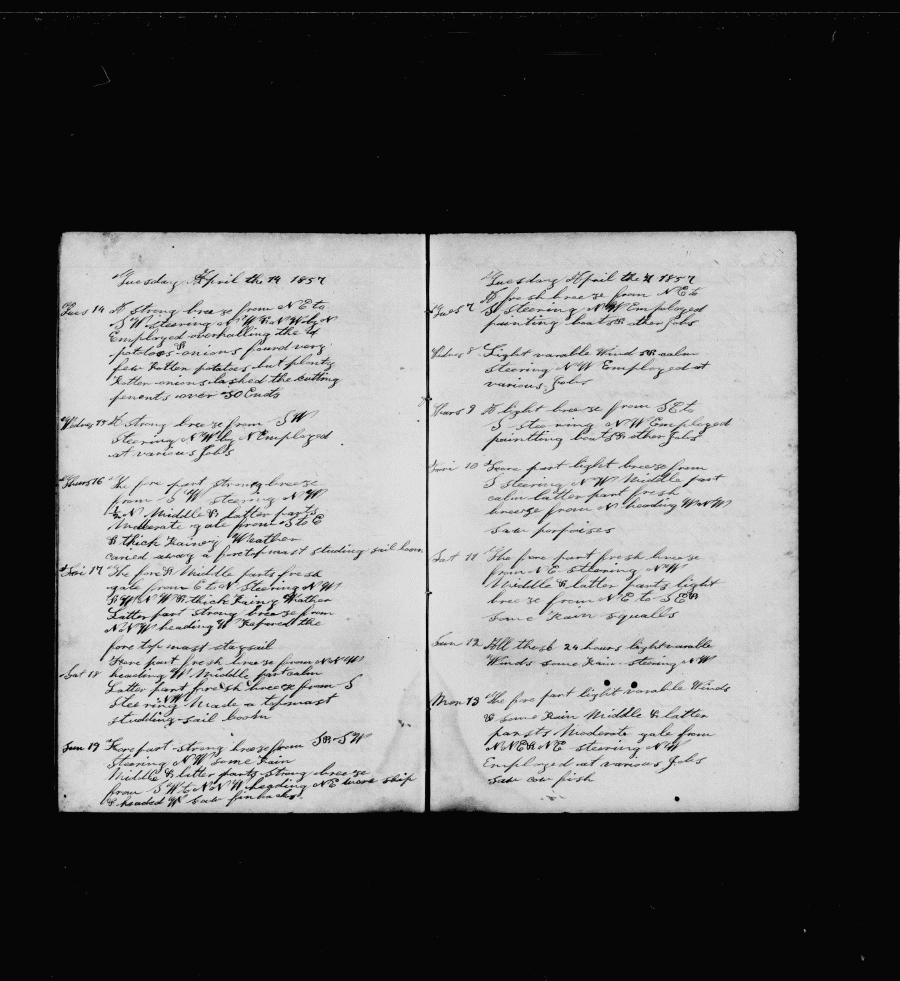 Tuesday April the 14 1857
Tues 14 A strong breeze from N E to
S W steering N W & N W by N
Employed overhalling the
potatoes & onions found very
few Rotten potatoes but plenty
Rotten onions lashed the cutting
over 30 Ends
Wednes 15 A strong breeze from S W
Steering N W by N Employed
at various Jobs
Thurs 16 The fore part strong breeze
from S W steering N W
1/2 N Middle & latter parts
Moderate gale from S to E
& thick Rainey Weather
caried away a foretopmast studing sail boom
Fri 17 The fore & Middle parts fresh
gale from E to N Steering N W
& W N W & thick Rainy Weather
Latter part strong breeze from
N N W heading W Repared the
fore top mast staysail
Fore part fresh breeze from N N W
Sat 18 heading W Middle part calm
Latter part fresh breeze from S
Steering N W Made a topmast
studding-sail boom
Sun 19 Fore part strong breeze from S & S W
Steering N W Some Rain
Middle & latter parts strong breeze
from S W to N N W heading N E wore ship
& headed W Saw finbacks
Tuesday April the 7 1857
Tues 7 A fresh breeze from N E to
S Steering N W Employed
painting boats & other Jobs
Wednes 8 Light varable Winds & calm
Steering N W Employed at
various Jobs
Thurs 9 A light breeze from S E to
S Steering N W Employed
paintting boats & other Jobs
Fri 10 Fore part light breeze from
S Steering N W Middle part
calm latter part fresh
breeze from N heading W N W
Saw porpoises
Sat 11 The fore part fresh breeze
from N E Stearing N W
Middle & latter parts light
breeze from N E to S E &
some Rain squalls
Sun 12 All thes 24 hours light varable
Winds some Rain steering N W
Mon 13 The fore part light varable Winds
& some Rain Middle & latter
parsts Moderate gale from
N N E & N E steering N W
Employed at various Jobs
Saw cow fish